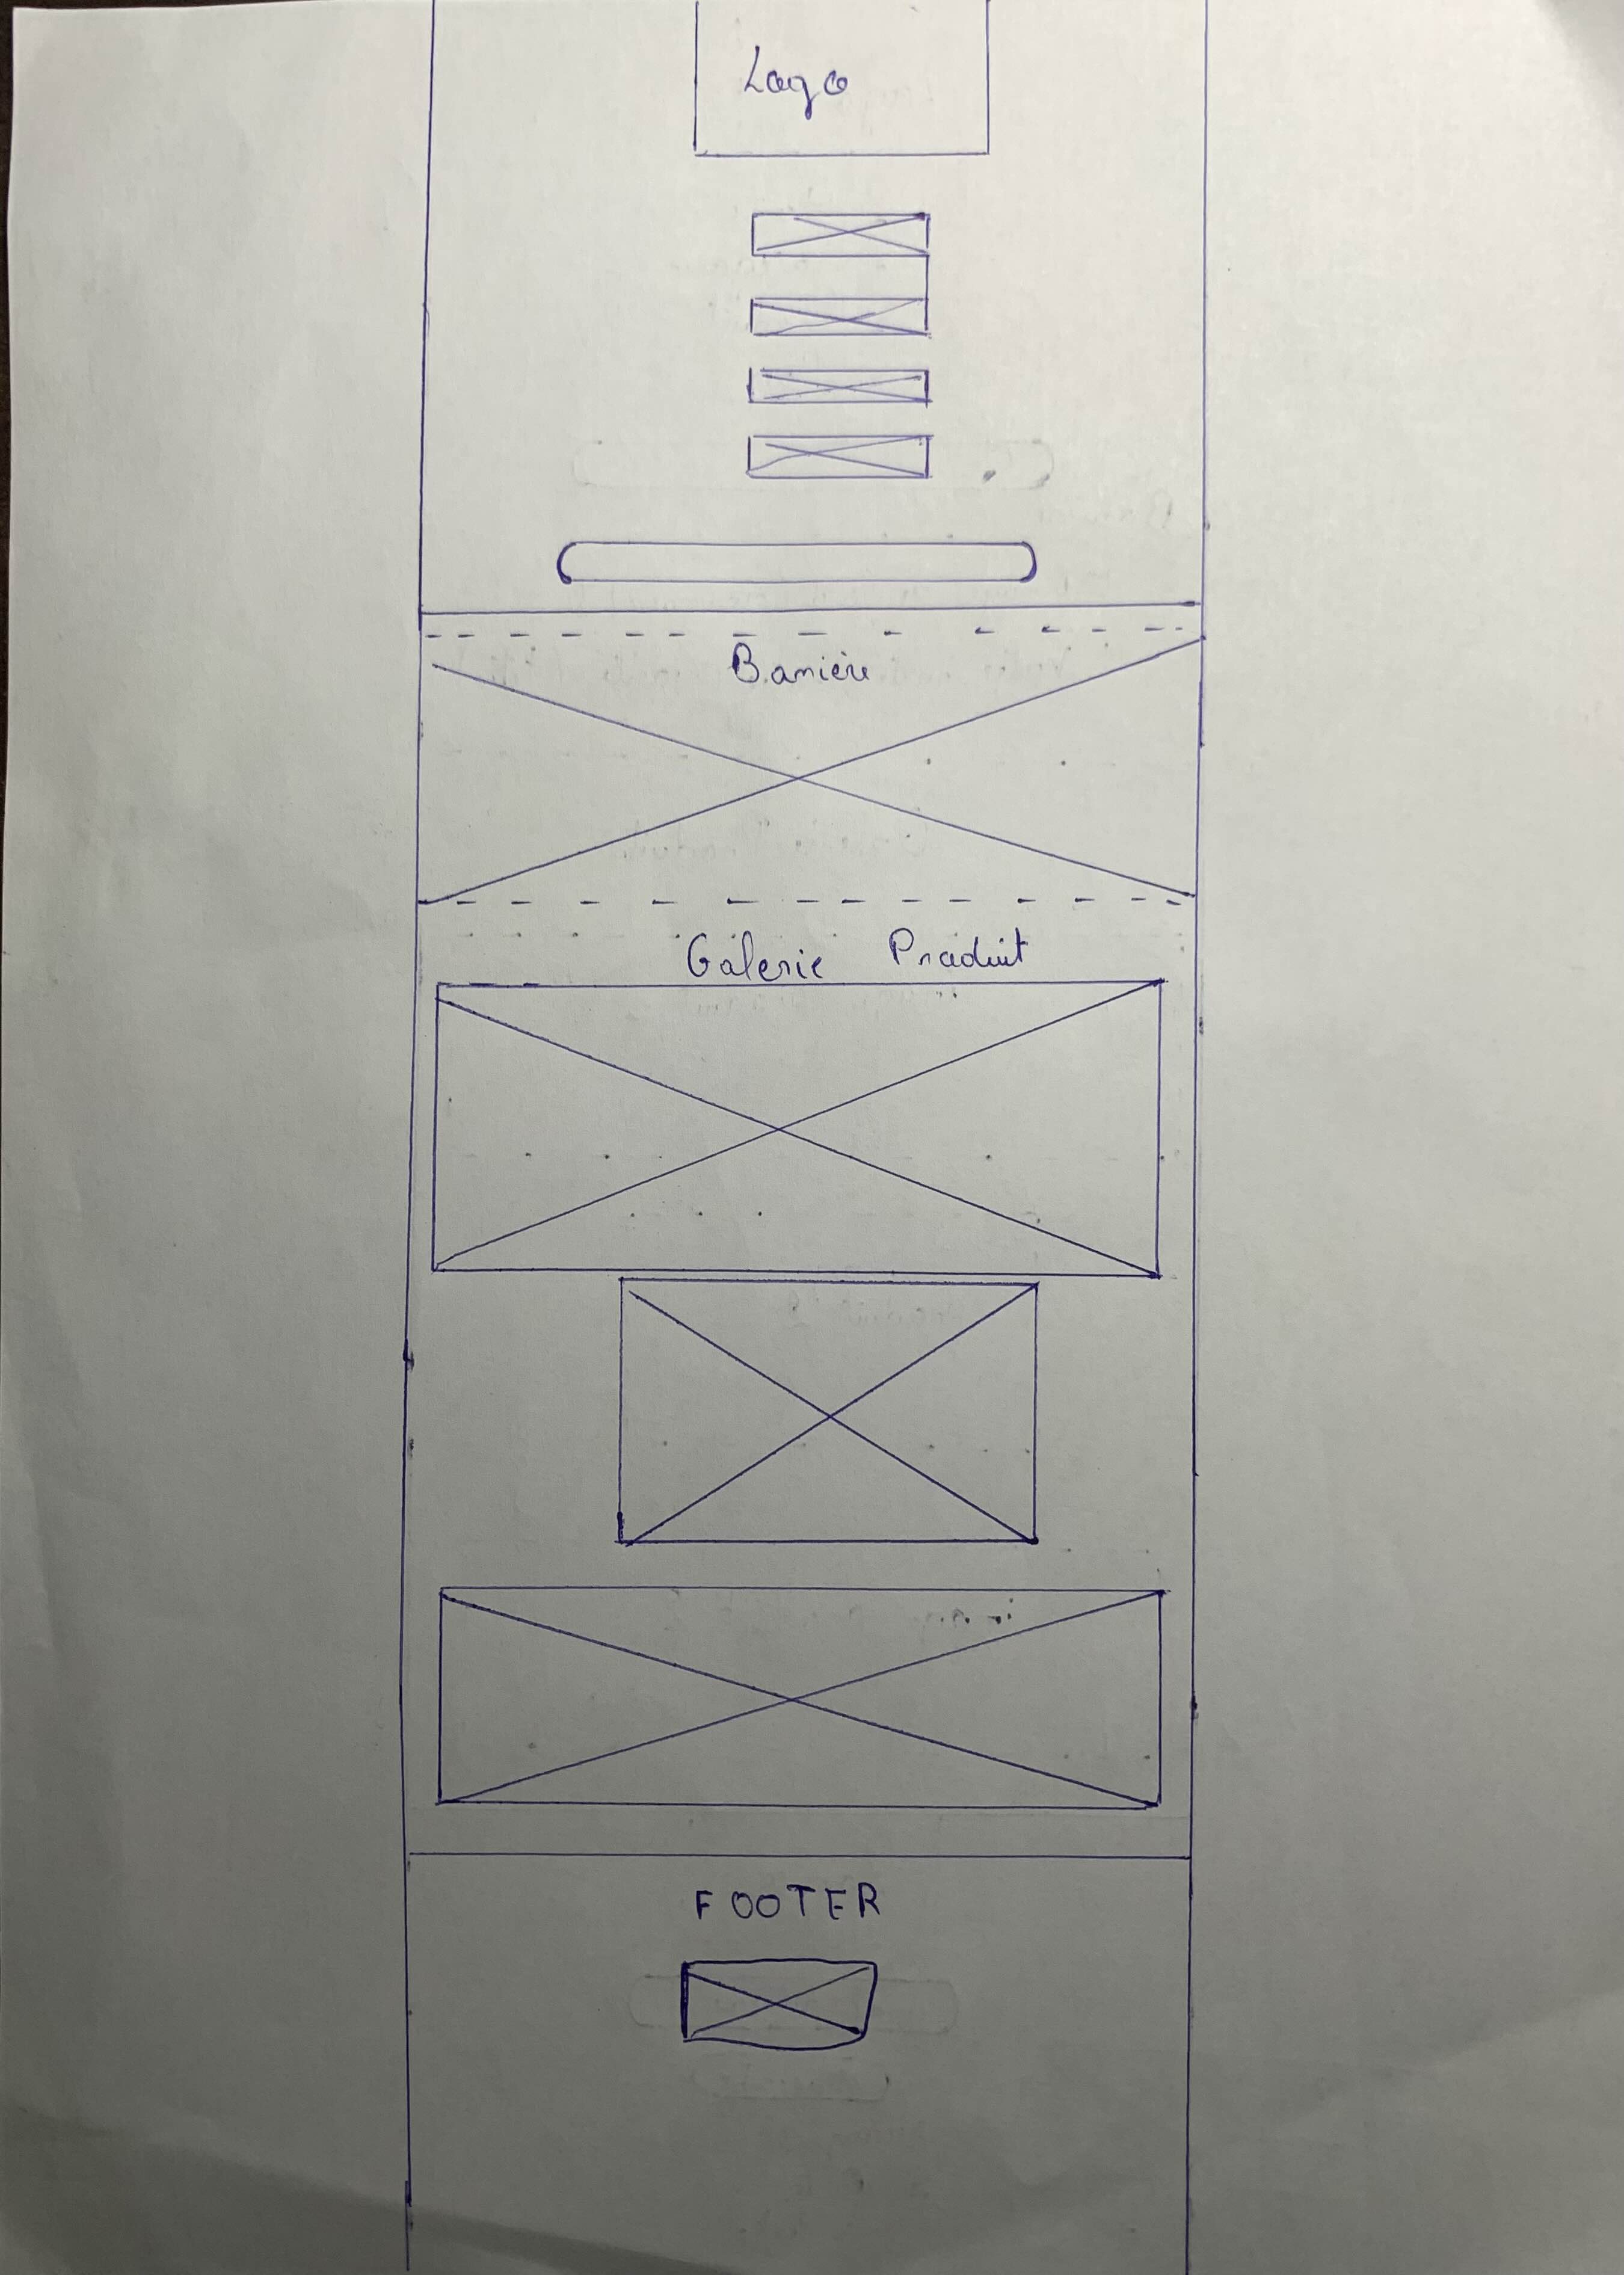 Logo
Banière
Galerie Produit
FOOTER